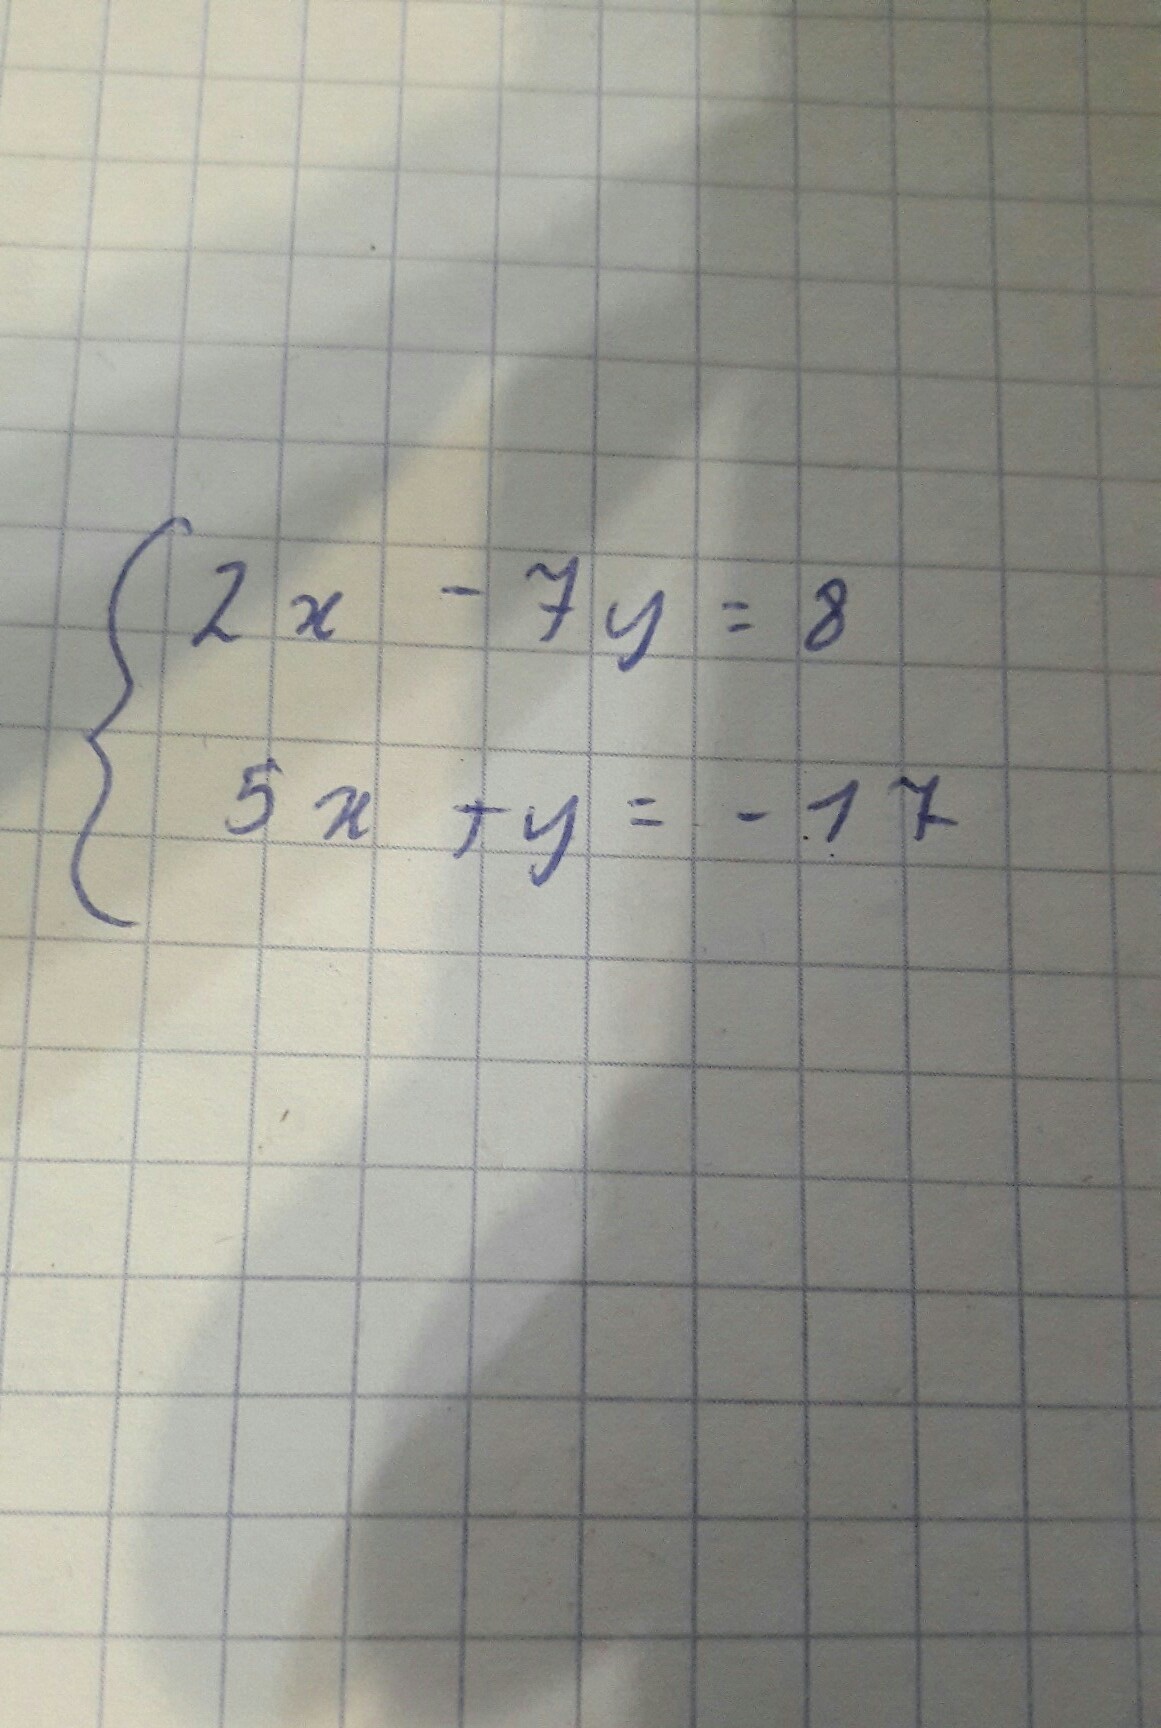 2x - 7y = 8
5x + y = -17